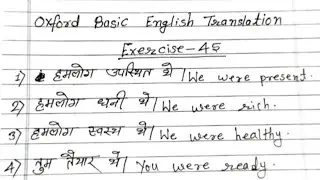 Oxford Basic English Translation
Exercise-46
1) हमलोग उपस्थित थे। We were present.
2) हमलोग धनी थे। We were rich.
3) हमलोग स्वस्थ थे। We were healthy.
4) तुम तैयार थे। You were ready.